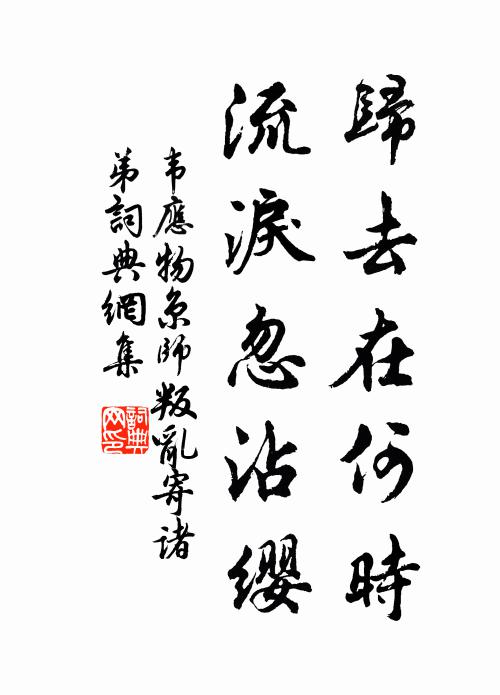 歸去在何時
流淚忽沾纓
韦應物京師叛亂寄諸
弟詞典網集
詞典
网印